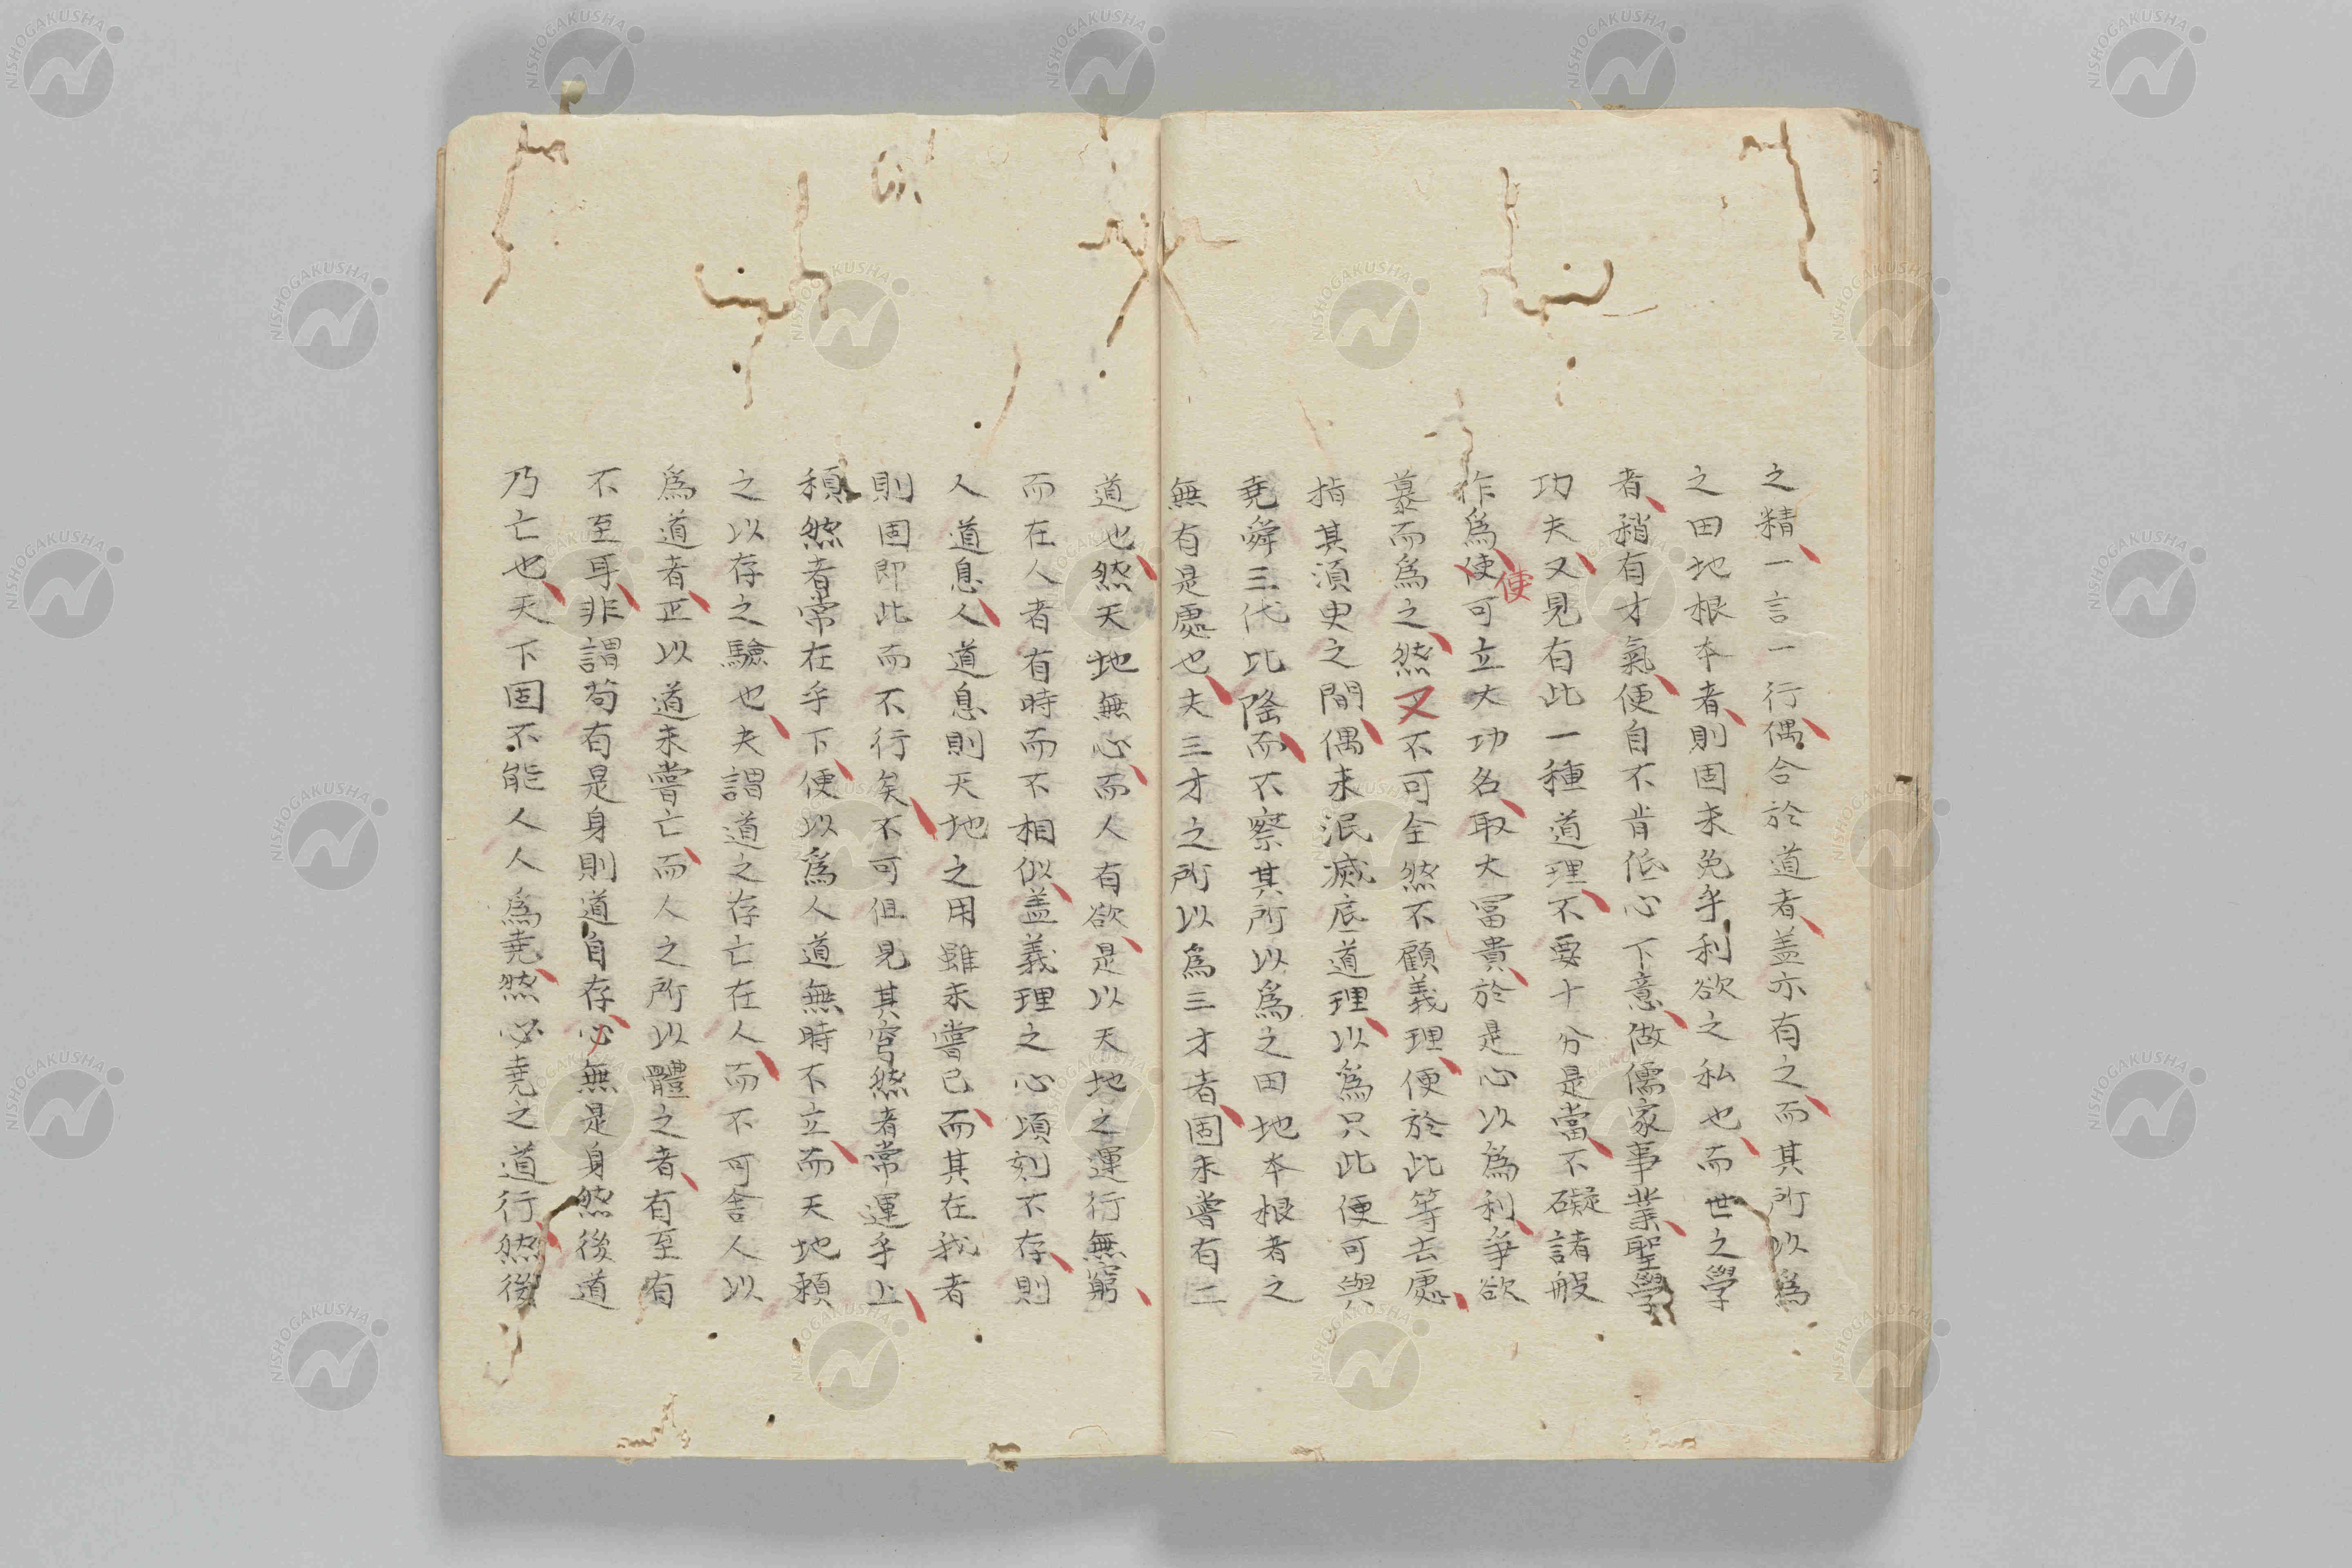 之精一言一行偶合於道者盖亦有之而其所以爲
之田地根本者則固未免乎利欲之私也而世之學
者稍有才氣便自不肯低心下意做儒家事業聖學
功夫又見有此一種道理不要十分是當不礙諸般
作爲使可立大功名取大冨貴於是心以爲利爭欲
使
慕而爲之然又不可全然不顧義理便於此等去處
指其須臾之間偶未泯滅底道理以爲只此便可與
堯舜三代比隆而不察其所以爲之田地本根者之
無有是處也夫三才之所以爲三才者固未嘗有二
道也然天地無心而人有欲是以天地之運行無窮
而在人者有時而不相似盖義理之心頃刻不存則
人道息人道息則天地之用雖未嘗已而其在我者
則固即此而不行矣不可但見其穹然者常運乎上
頽然者常在乎下便以爲人道無時不立而天地頼
之以存之驗也夫謂道之存亡在人而不可舍人以
爲道者正以道未嘗亡而人之所以體之者有至有
不至耳非謂苟有是身則道自存必無是身然後道
乃亡也天下固不能人人爲堯然必堯之道行然後
NISHOGAKUSHA